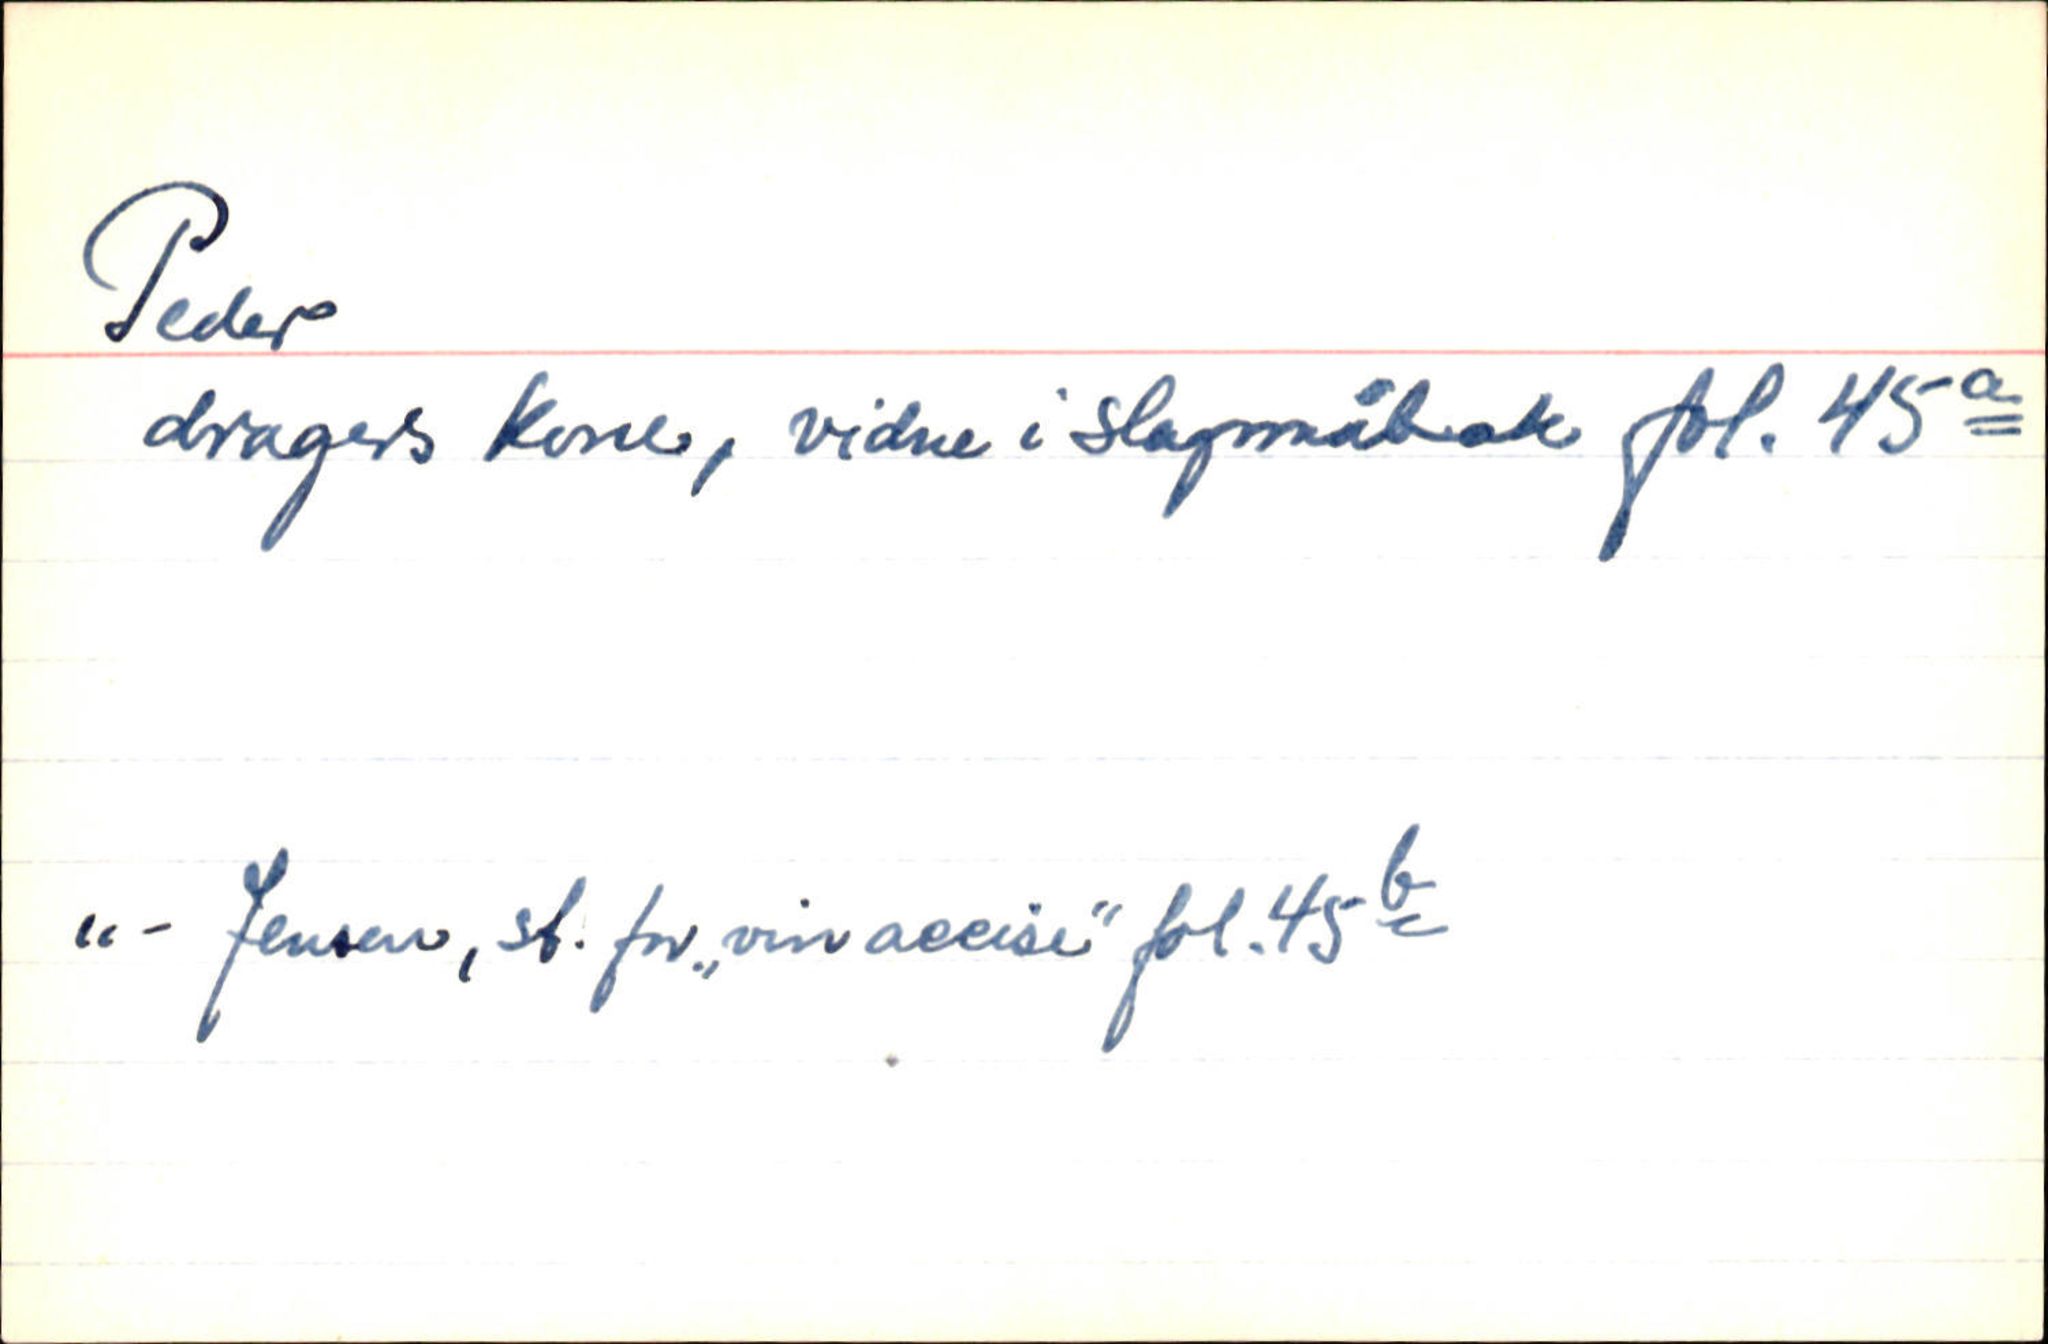 Peder
dragers kone, vidne i slagmålsak fol. 45 a
"- Jensen, st. for „vin accise" fol. 45 b